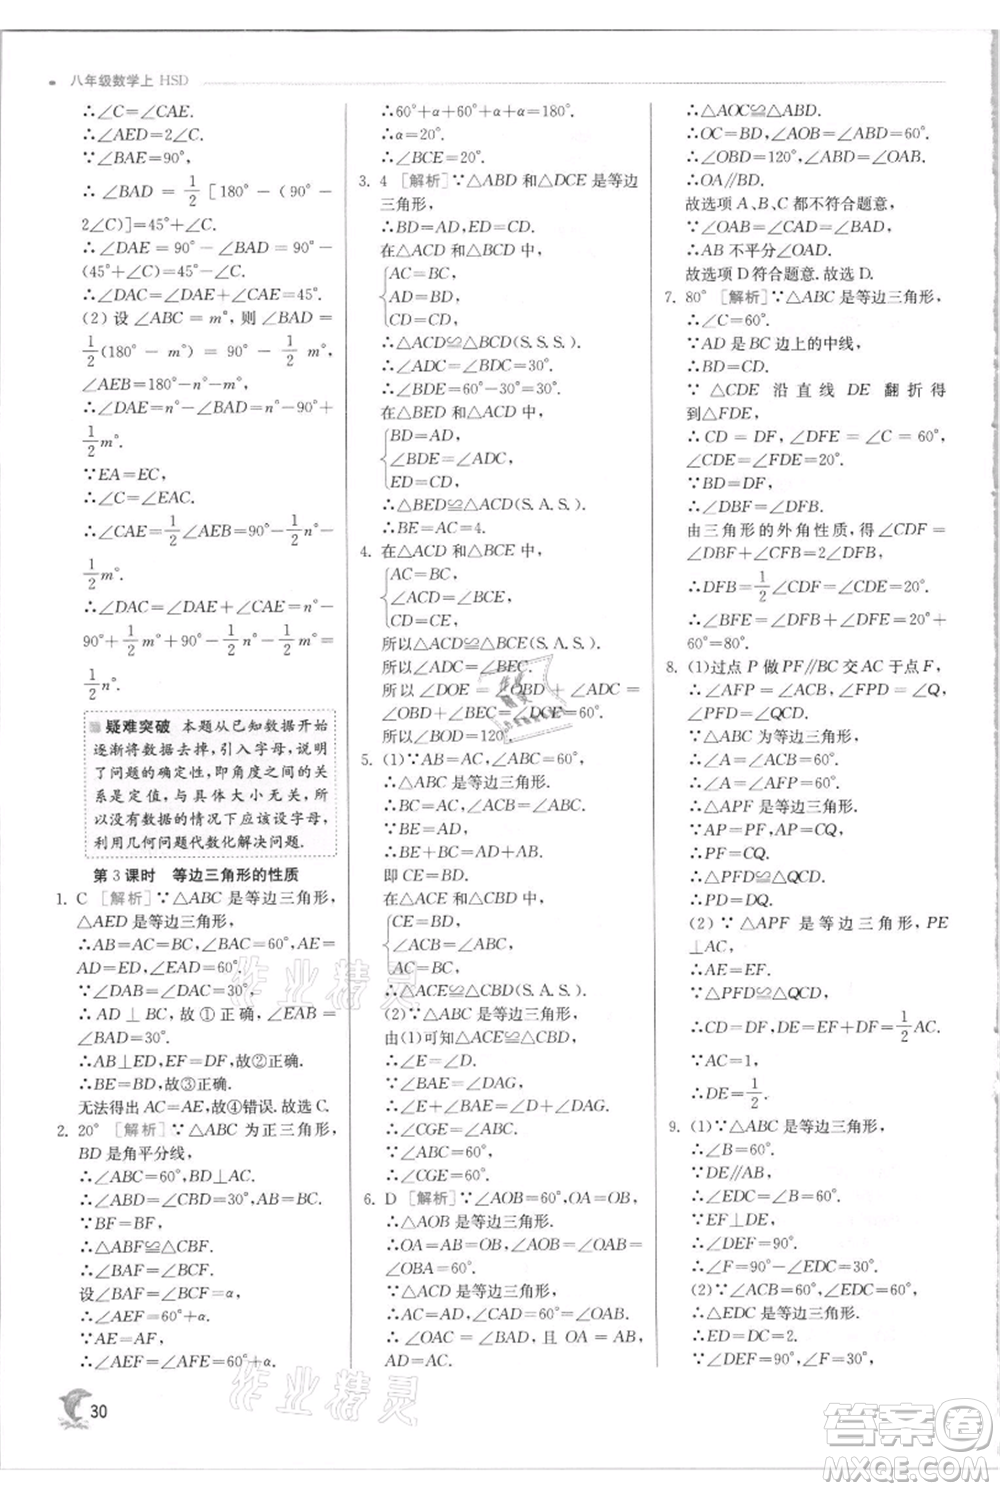 八年级数学上 HSD
∴∠C=∠CAE.
∴∠AED=2∠C.
∵∠BAE=90°,
∴∠BAD = 1/2 [180°-(90°-
2∠C)]=45°+∠C.
∴∠DAE=90°-∠BAD=90°-
(45°+∠C)=45°-∠C.
∴∠DAC=∠DAE+∠CAE=45°.
(2)设∠ABC=m°,则∠BAD=
1/2(180°-m°)=90°-1/2m°,
∠AEB=180°-n°-m°.
∴∠DAE=n°-∠BAD=n°-90°+
1/2m°.
∵EA=EC,
∴∠C=∠EAC.
∴∠CAE=1/2∠AEB=90°-1/2n°-
1/2m°.
∴∠DAC=∠DAE+∠CAE=n°-
90°+1/2m°+90°-1/2n°-1/2m°=
1/2n°.
疑难突破 本题从已知数据开始
逐渐将数据去掉,引入字母,说明
了问题的确定性,即角度之间的关
系是定值,与具体大小无关,所
以没有数据的情况下应该设字母,
利用几何问题代数化解决问题.
第3课时 等边三角形的性质
1. C [解析]∵△ABC是等边三角形,
△AED是等边三角形,
∴AB=AC=BC,∠BAC=60°,AE=
AD=ED,∠EAD=60°.
∵∠DAB=∠DAC=30°,
∴AD⊥BC,故①正确,∠EAB=
∠BAD=30°.
∴AB⊥ED,EF=DF,故②正确.
∴BE=BD,故③正确.
无法得出AC=AE,故④错误.故选C.
2. 20° [解析]∵△ABC为正三角形,
BD是角平分线,
∴∠ABC=60°,BD⊥AC.
∴∠ABD=∠CBD=30°,∠BAC=60°.
∵BF=BF,
∴△ABF≌△CBF.
∴∠BAF=∠BCF.
设∠BAF=∠BCF=α,
∴∠AEF=60°+α.
∵AE=AF,
∴∠AEF=∠AFE=60°+α.
∴60°+α+60°+α+α=180°.
∴α=20°.
∴∠BCE=20°.
3. 4 [解析]∵△ABD和△DCE是等边
三角形,
∴BD=AD,ED=CD.
在△ACD和△BCD中,
AC=BC,
AD=BD,
CD=CD,
∴△ACD≌△BCD(S.S.S.).
∴∠ADC=∠BDC=30°.
∴∠BDE=60°-30°=30°.
在△BED和△ACD中,
BD=AD,
∠BDE=∠ADC,
ED=CD,
∴△BED≌△ACD(S.A.S.).
∴BE=AC=4.
4. 在△ACD和△BCE中,
AC=BC,
∠ACD=∠BCE,
CD=CE,
所以△ACD≌△BCE(S.A.S.).
所以∠ADC=∠BEC.
所以∠DOE=∠BEC+∠ADC=
∠OBD+∠BEC=60°.
所以∠BOD=120°.
5. (1)∵AB=AC,∠BAC=60°,
∴△ABC是等边三角形.
∴BC=AC,∠ACB=∠ABC=60°.
∵BE=AD,
∴BE+BC=AD+AB,
即CE=BD.
在△ACE和△CBD中,
CE=BD,
∠ACB=∠CBD,
AC=BC,
∴△ACE≌△CBD(S.A.S.).
(2)∵△ABC是等边三角形,
由(1)可知△ACE≌△CBD,
∴∠E=∠D.
∵∠BAE=∠DAG,
∴∠E+∠BAE=∠D+∠DAG.
∴∠CGE=∠ABC.
∵∠ABC=60°,
∴∠CGE=60°.
6. D [解析]∵∠AOB=60°,OA=OB,
∴△AOB是等边三角形.
∴OA=AB=OB,∠OAB=60°,
∠OBA=60°.
∵△ACD是等边三角形,
∴AC=AD,∠CAD=60°=∠OAB.
∴∠OAC=∠BAD,且OA=AB,
AD=AC.
∴△AOC≌△ABD.
∴OC=BD,∠AOC=∠ABD=60°.
∴∠OBD=120°,∠ABD=∠OAB.
∴OA∥BD.
故选项A、B、C都不符合题意.
∵∠OAB=∠CAD>∠BAD,
∴AB不平分∠OAD.
故选项D符合题意.故选D.
7. 80° [解析]∵△ABC是等边三角形,
∴∠C=60°.
∵AD是BC边上的中线,
∴BD=CD.
∵△CDE沿直线DE翻折得
到△FDE,
∴CD=DF,∠DFE=∠C=60°,
∠CED=∠FED=20°.
∵BD=DF,
∴∠DBF=∠DFB.
由三角形的外角性质,得∠CDF=
∠DBF+∠CFB=2∠DFB.
∴∠DFB=1/2∠CDF=∠CDE=20°.
∴∠BFE=∠DFB+∠DFE=20°+
60°=80°.
8. (1)过点P做PF∥BC交AC于点F,
∴∠AFP=∠ACB,∠FPD=∠Q,
∠PFD=∠QCD.
∵△ABC为等边三角形,
∴∠A=∠ACB=60°.
∴∠A=∠AFP=60°.
∴△APF是等边三角形.
∵AP=PF,AP=CQ,
∴PF=CQ.
∴△PFD≌△QCD.
∴PD=DQ.
(2)∵△APF是等边三角形,PE
⊥AC,
∴AE=EF.
∵△PFD≌△QCD,
∴CD=DF,DE=EF+DF=1/2AC.
∵AC=1,
∴DE=1/2.
9. (1)∵△ABC是等边三角形,
∴∠B=60°.
∵DE∥AB,
∴∠EDC=∠B=60°.
∵EF⊥DE,
∴∠DEF=90°.
∴∠F=90°-∠EDC=30°.
(2)∵∠ACB=60°,∠EDC=60°,
∴△EDC是等边三角形.
∴ED=DC=2.
∵∠DEF=90°,∠F=30°,
30
作业精灵
作业精灵
答案圈
MXQE.COM